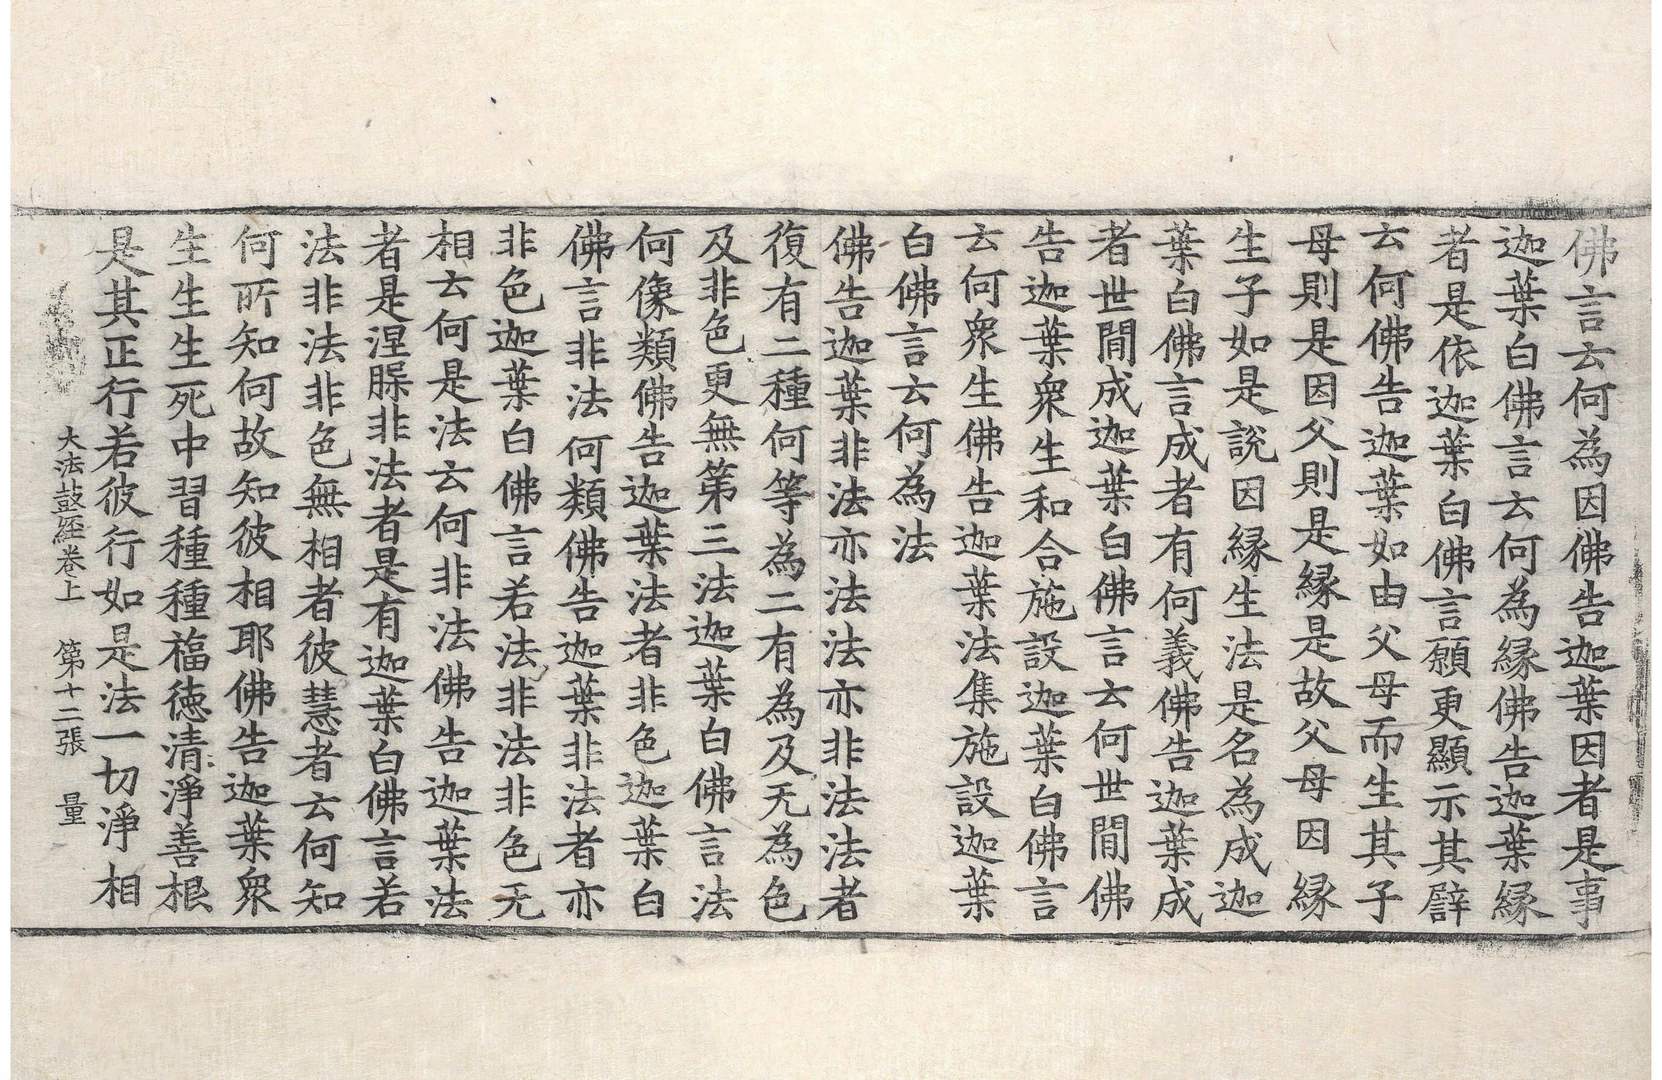 佛言云何為因佛告迦葉因者是事
迦葉白佛言云何為縁佛告迦葉縁
者是依迦葉白佛言願更顯示其譬
云何佛告迦葉如由父母而生其子
母則是因父則是縁是故父母因縁
生子如是說因縁生法是名為成迦
葉白佛言成者有何義佛告迦葉成
者世間成迦葉白佛言云何世間佛
告迦葉衆生和合施設迦葉白佛言
云何衆生佛告迦葉法集施設迦葉
白佛言云何為法
佛告迦葉非法亦法法亦非法法者
復有二種何等為二有為及无為色
及非色更無第三法迦葉白佛言法
何像類佛告迦葉法者非色迦葉白
佛言非法何類佛告迦葉非法者亦
非色迦葉白佛言若法非法非色无
相云何是法云何非法佛告迦葉法
者是涅槃非法者是有迦葉白佛言若
法非法非色無相者彼慧者云何知
何所知何故知彼相耶佛告迦葉衆
生生生死中習種種福徳清淨善根
是其正行若彼行如是法一切淨相
大法鼓経卷上　第十二張　量